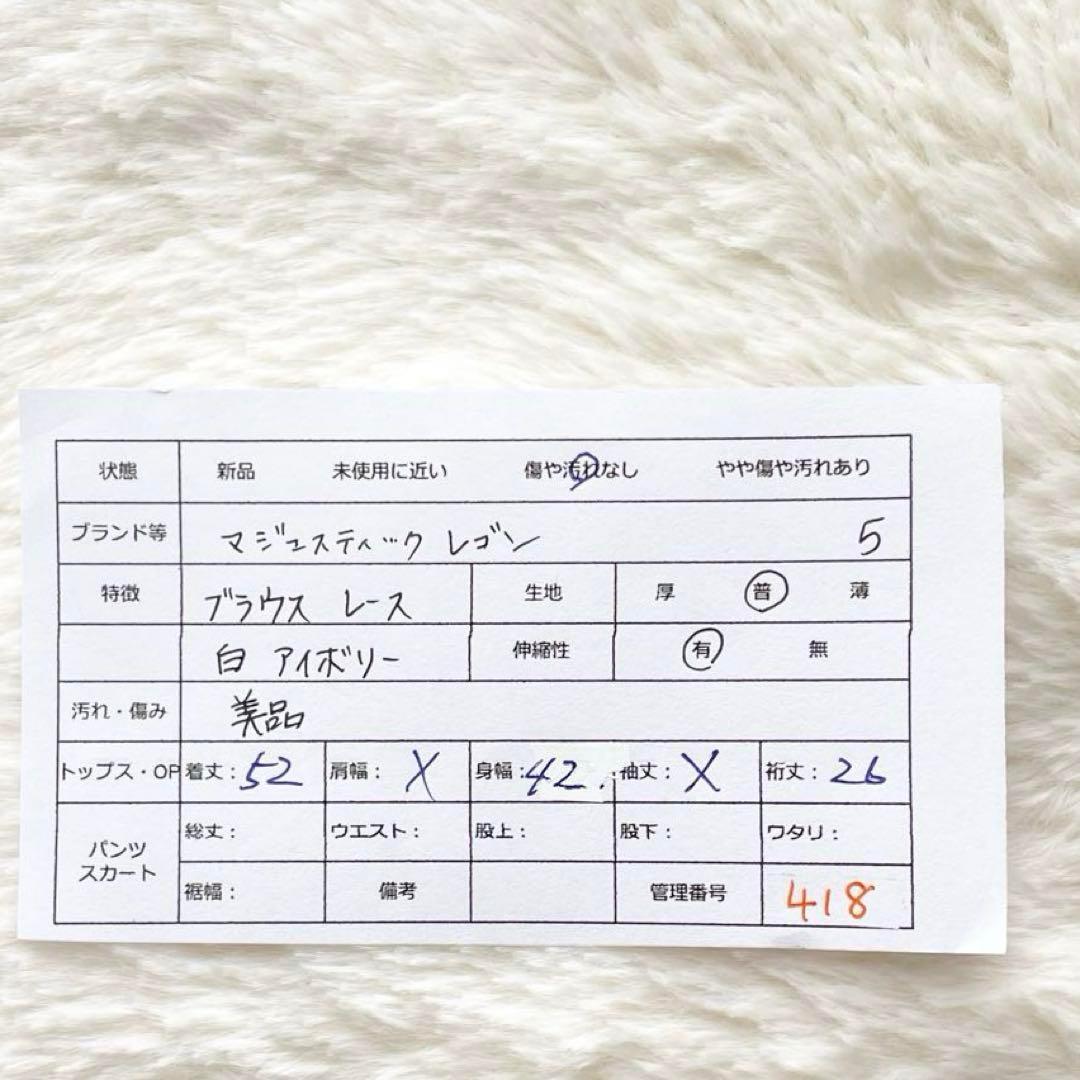 状態 新品 未使用に近い 傷や汚れなし やや傷や汚れあり
ブランド等 マジェスティック レゴン 5
特徴 ブラウス レース 生地 厚 普 薄
白 アイボリー 伸縮性 有 無
汚れ・傷み 美品
トップス・OP 着丈：52 肩幅：X 身幅：42. 袖丈：X 裄丈：26
パンツ
スカート
総丈： ウエスト： 股上： 股下： ワタリ：
裾幅： 備考 管理番号 418